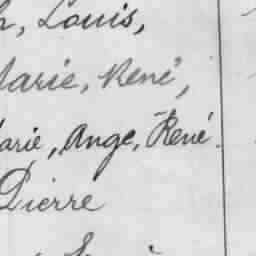 Louis,
Marie, René,
Marie, Ange, René.
Pierre